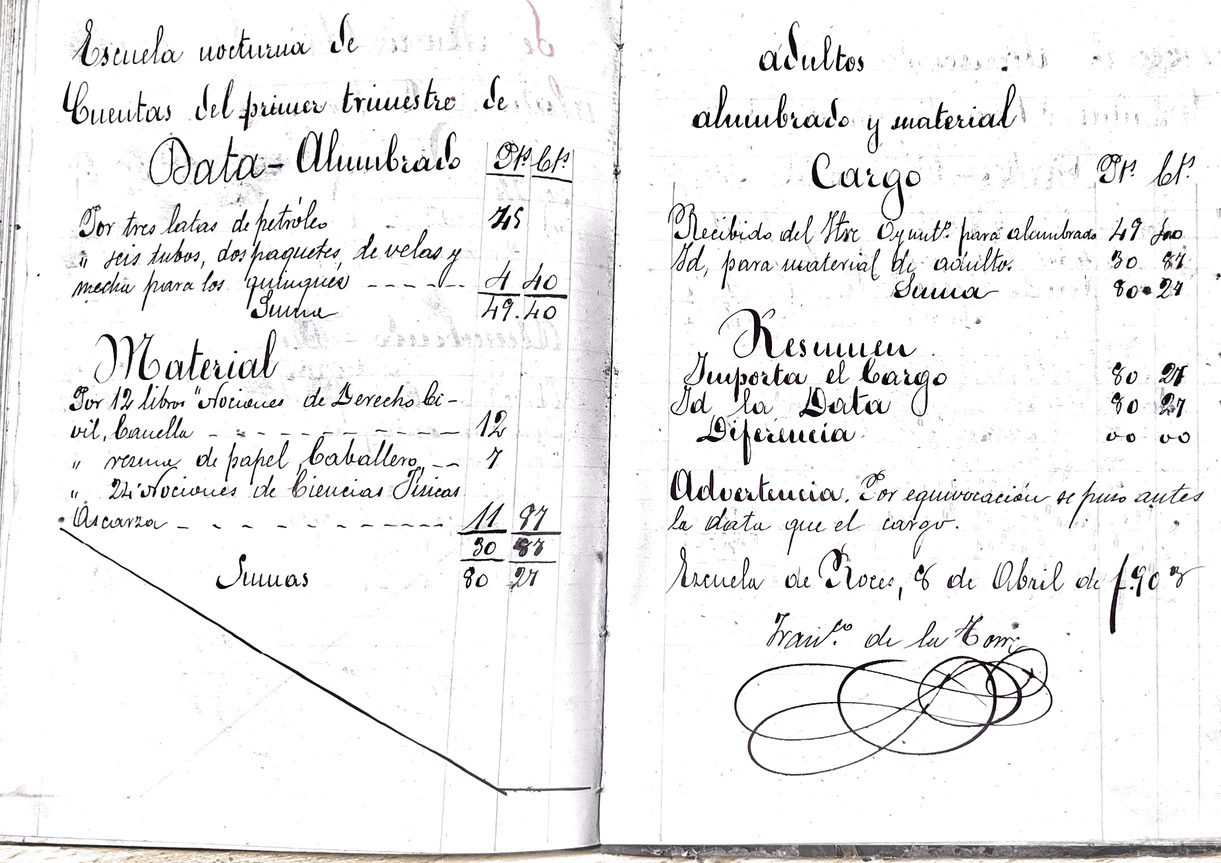 Escuela nocturna de
Cuentas del primer trimestre de
Data - Alumbrado Pts Cts
Por tres latas de petróleo 45
" seis tubos, dos paquetes de velas y
mecha para los quinqués ------ 4 40
Suma 49.40
Material
Por 12 libros "Nociones de Derecho Ci-
vil, Canella - - - - - - - - - 12
" resma de papel Caballero, -- 7
" 24 Nociones de Ciencias Físicas
Ascarza - - - - - - - - - - - 11 87
30 87
Sumas 80 27
adultos
alumbrado y material
Cargo Pts. Cts.
Recibido del Iltre Ayuntº. para alumbrado 49 40
Id, para material de adultos. 30 87
Suma 80 27
Resumen
Importa el Cargo 80 27
Id la Data 80 27
Diferencia 00 00
Advertencia. Por equivocación se puso antes
la data que el cargo.
Escuela de Roces, 8 de Abril de
Franco. de la Torre